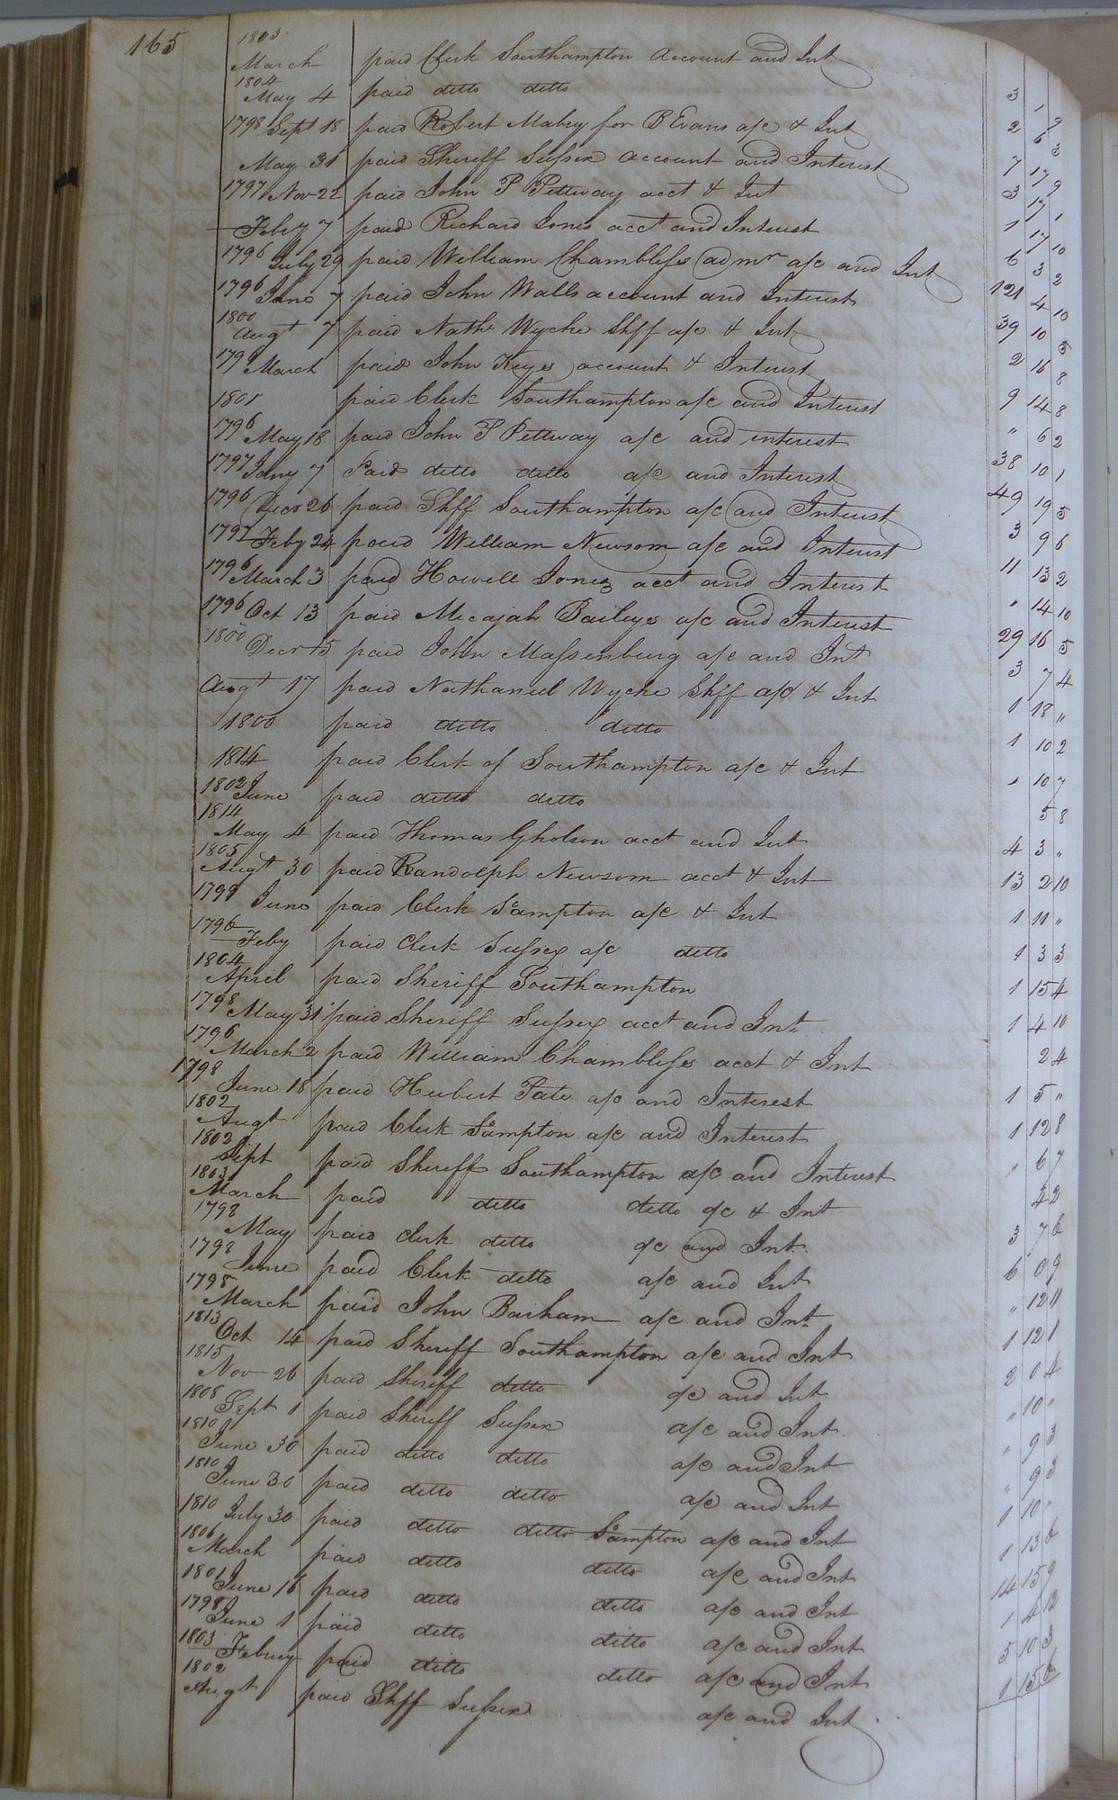 165
1803 March paid Clerk Southampton Account and Int
1804 May 4 paid ditto ditto 3 1 9
1798 Sept 18 paid Robert Mabry for B Evans a/c & Int 2 6 3
May 31 paid Sheriff Sussex account and Interest 7 17 9
1797 Nov 22 paid John P Pettway acct & Int 3 17 1
Feby 7 paid Richard Jones acct and Interest 1 17 10
1796 July 29 paid William Chambless admr a/c and Int 6 3 2
1796 June 7 paid John Walls account and Interest 121 4 10
1800 Augt 7 paid Nathl Wyche Shff a/c & Int 39 10 5
179 March paid John Keyes account & Interest 2 16 8
1801 paid Clerk Southampton a/c and Interest 9 14 8
1796 May 18 paid John P Pettway a/c and interest " 6 2
1797 Jany 7 Paid ditto ditto a/c and Interest 38 10 1
1796 Decr 26 paid Shff Southampton a/c and Interest 49 19 5
1797 Feby 24 paid William Newsom a/c and Interest 3 9 6
1796 March 3 paid Howell Jones acct and Interest 11 13 2
1796 Oct 13 paid Micajah Baileys a/c and Interest " 14 10
1800 Decr 15 paid John Massenburg a/c and Int 29 16 5
Augt 17 paid Nathaniel Wyche Shff a/c & Int 3 7 4
1800 paid ditto ditto 1 18 "
1814 paid Clerk of Southampton a/c & Int 1 10 2
1802 June paid ditto ditto 1 10 7
1814 May 4 paid Thomas Gholson acct and Int 5 8
1805 Augt 30 paid Randolph Newsom acct & Int 4 3 "
1799 June paid Clerk S'ampton a/c & Int 13 2 10
1796 Feby paid Clerk Sussex a/c ditto 1 11 "
1804 April paid Sheriff Southampton 1 3 3
1798 May 31 paid Sheriff Sussex acct and Int 1 15 4
1796 March 2 paid William Chambless acct & Int 1 4 10
1798 June 18 paid Hubert Pate a/c and Interest 2 4
1802 Augt paid Clerk S'ampton a/c and Interest 1 5 "
1802 Sept paid Sheriff Southampton a/c and Interest 1 12 8
1803 March paid ditto ditto a/c & Int " 6 7
1798 May paid Clerk ditto a/c and Int. 4 2
1798 June paid Clerk ditto a/c and Int 3 7 6
1798 March paid John Barham a/c and Int 6 0 9
1813 Oct 14 paid Sheriff Southampton a/c and Int " 12 11
1815 Nov 26 paid Sheriff ditto a/c and Int 1 12 1
1808 Sept 1 paid Sheriff Sussex a/c and Int. 2 0 4
1810 June 30 paid ditto ditto a/c and Int " 10 "
1810 June 30 paid ditto ditto a/c and Int " 9 3
1810 July 30 paid ditto ditto S'ampton a/c and Int " 9 3
1806 March paid ditto ditto a/c and Int 1 10 "
1801 June 16 paid ditto ditto a/c and Int 1 13 6
1798 June 1 paid ditto ditto a/c and Int 14 15 9
1803 Febury paid ditto ditto a/c and Int 1 4
1802 Augt paid Shff Sussex a/c and Int 5 10 3
1 15 6